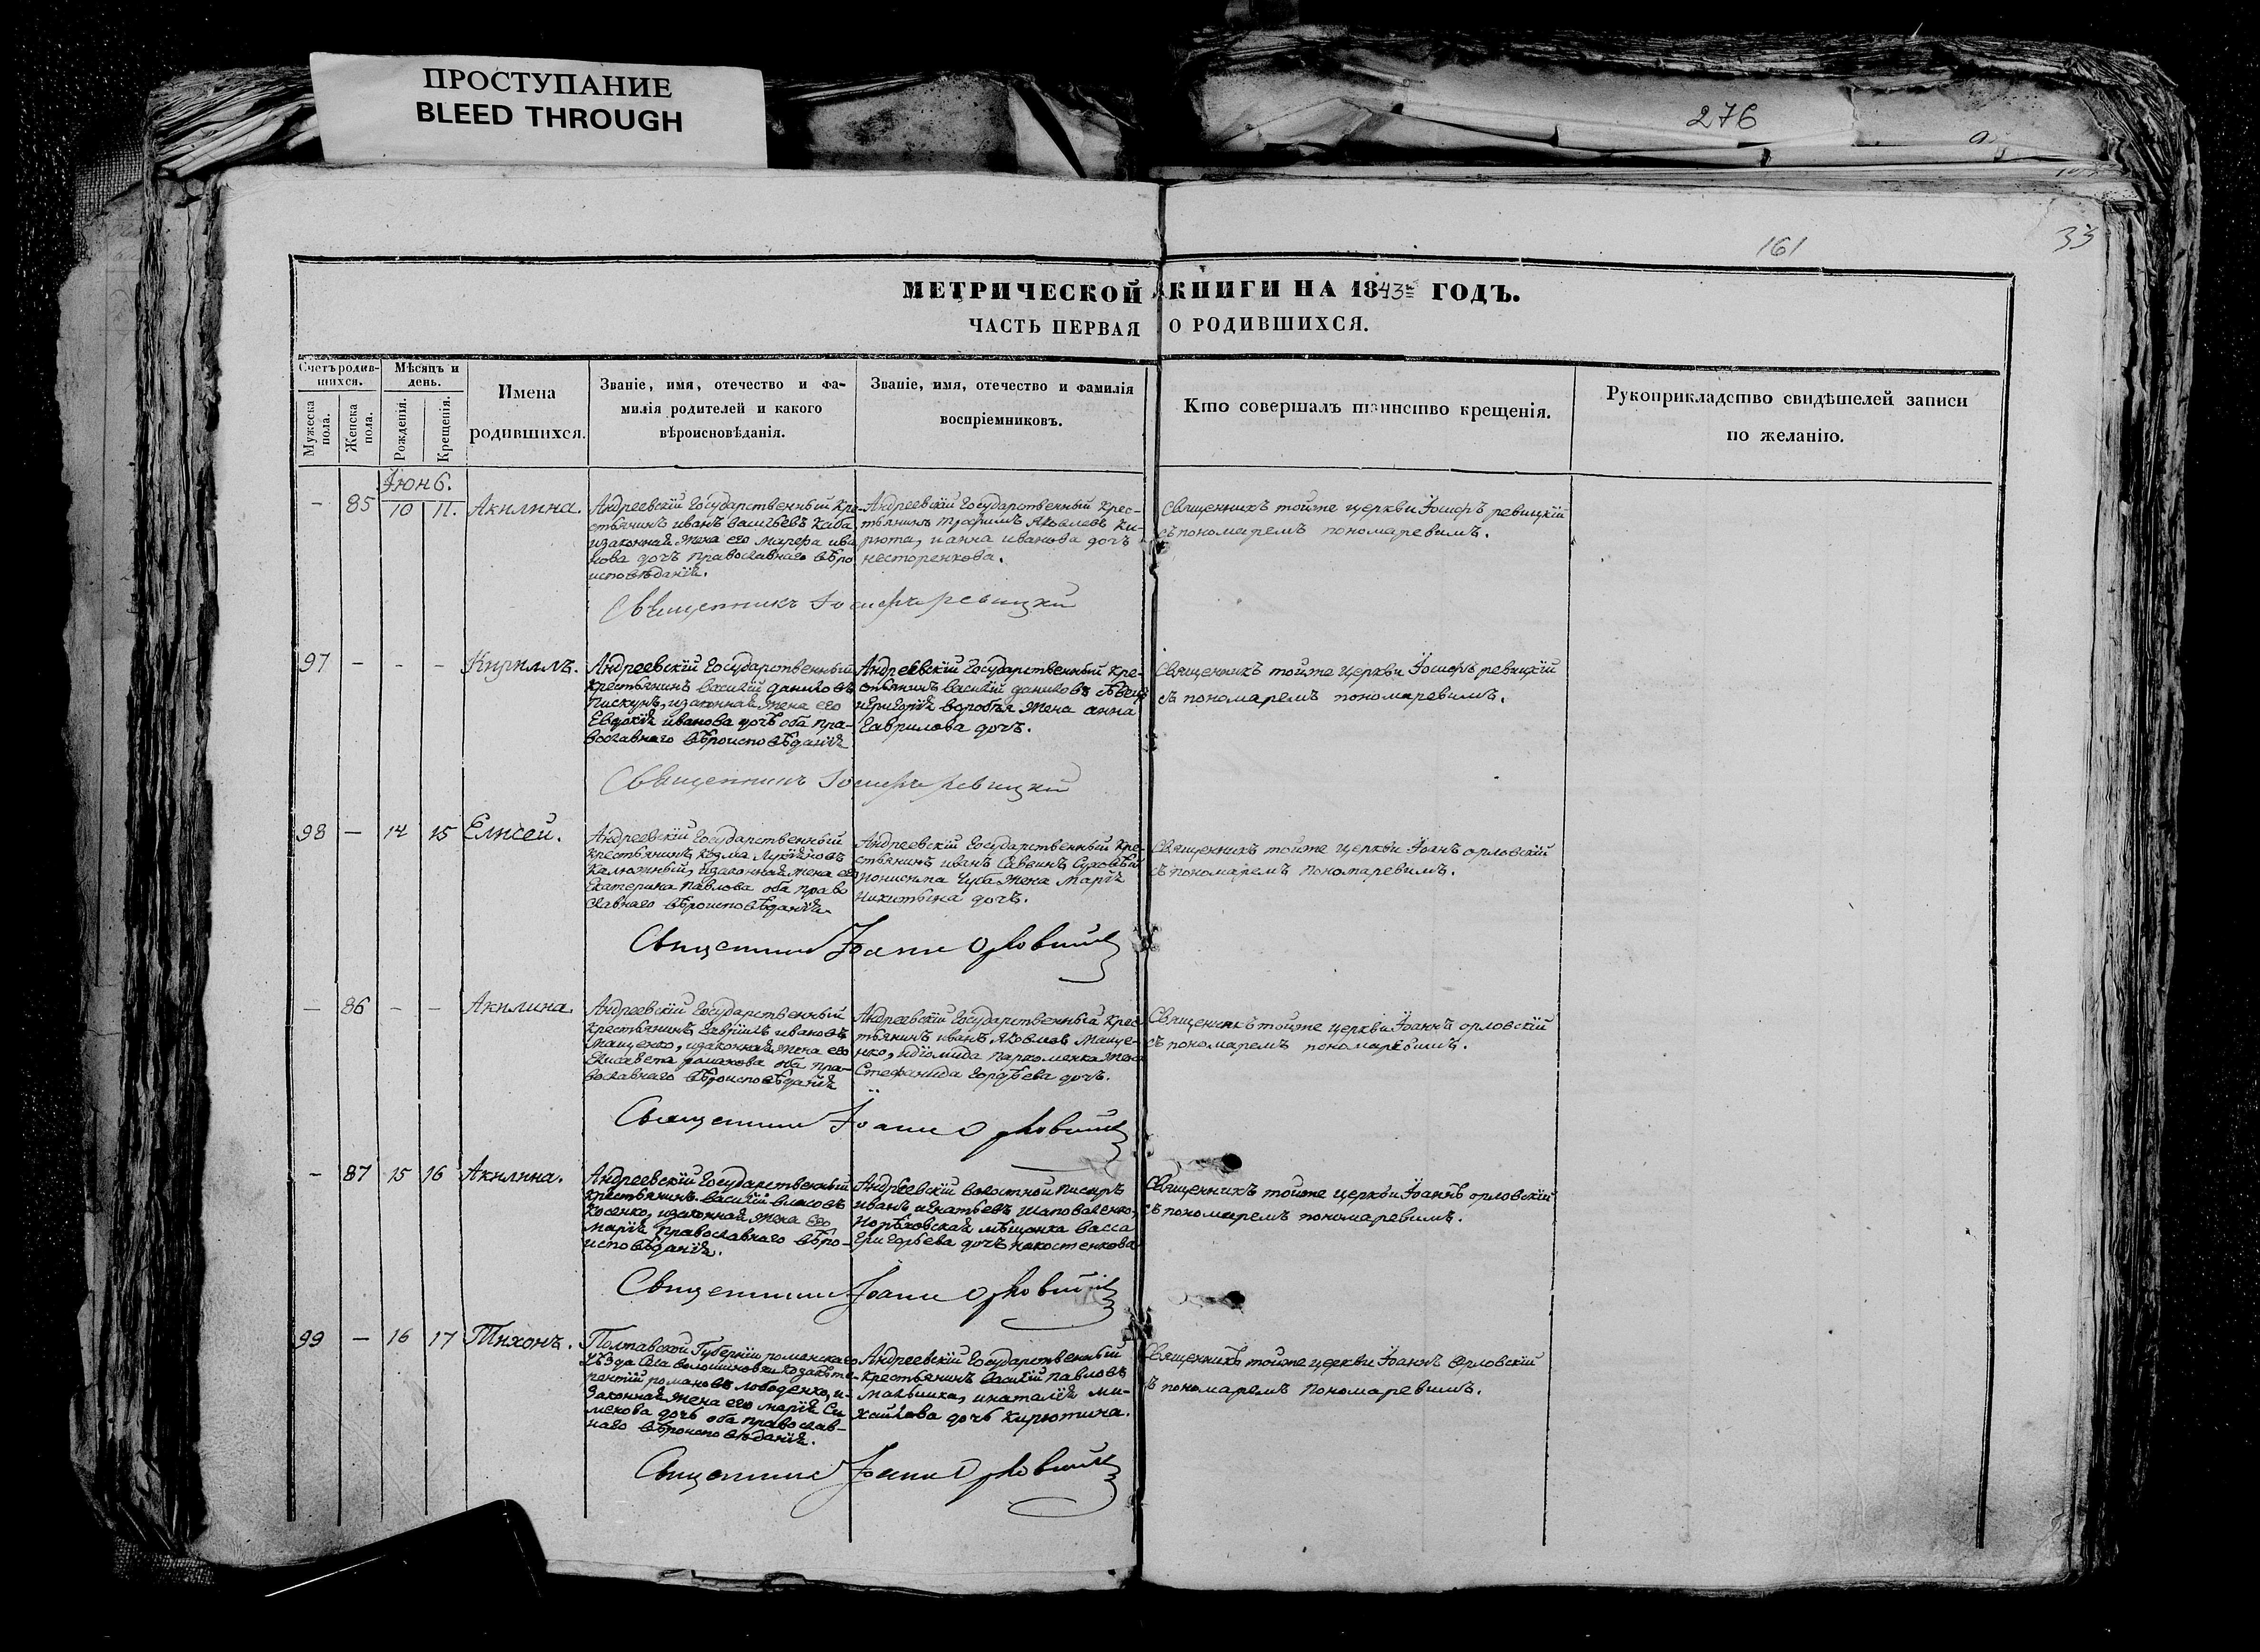 ПРОСТУПАНИЕ
BLEED THROUGH
276
161
33
МЕТРИЧЕСКОЙ КНИГИ НА 1843 ГОДЪ.
ЧАСТЬ ПЕРВАЯ О РОДИВШИХСЯ.
Счетъ родив-
шихся.
Мужеска пола.
Женска пола.
Мѣсяцъ и
день.
Рожденія.
Крещенія.
Имена
родившихся.
Званіе, имя, отечество и фа-
милія родителей и какого
вѣроисновѣданія.
Званіе, имя, отечество и фамилія
воспріемниковъ.
Кто совершалъ таинство крещенія.
Рукоприкладство свидѣтелей записи
по желанію.
Іюнь.
- 85 10 11. Акилина.
Андреевскій Государственный Кре-
стьянинъ иванъ васильевъ Каба
изаконная жена его Марфа ива
нова дочь Православнаго вѣро
исповѣданія.
Андреевскій Государственный Крес-
тьянинъ трофимъ Яковлевъ Ки-
рюта, и анна иванова дочь
несторенкова.
Священникъ тойже церкви Іосифъ ревицкій
съ пономаремъ пономаревимъ.
Священникъ Іосифъ ревицкій
97 - - - Кириллъ.
Андреевскій Государственный
Крестьянинъ василій даниловъ
Пискунъ, изаконная жена его
Евдокія иванова дочь оба пра-
вославнаго вѣроисповѣданія
Андреевскій Государственный Кре-
стьянинъ василій даниловъ
игригорія воробья жена анна
Гаврилова дочь.
Священникъ тойже церкви Іосифъ ревицкій
съ пономаремъ пономаревимъ.
Священникъ Іосифъ ревицкій
98 - 14 15 Елисей.
Андреевскій Государственный
Крестьянинъ Козма
Калюжный, изаконная жена его
Екатерина Павлова оба право
славнаго вѣроисповѣданія
Андреевскій Государственный Кре-
стьянинъ иванъ Саввинъ
ионисима Чуба жена Марія
Никитина дочь.
Священникъ тойже церкви Іоанъ орловскій
съ пономаремъ Пономаревимъ.
Священникъ Іоаннъ Орловскій
- 86 - - Акилина.
Андреевскій Государственный
Крестьянинъ Гавріилъ ивановъ
Мащенко, изаконная жена его
Елисавета романова оба пра-
вославнаго вѣроисповѣданія
Андреевскій Государственный Крес
тьянинъ иванъ Яковлевъ Маще-
нко, идіомида пархоменка жена
Стефанида Гордѣева дочь.
Священникъ тойже церкви Іоаннъ орловскій
съ пономаремъ пономаревимъ.
Священникъ Іоаннъ Орловскій
- 87 15 16 Акилина.
Андреевскій Государственный
Крестьянинъ василій власовъ
Косенко, изаконная жена его
Марія Православнаго вѣро-
исповѣданія.
Андреевскій волостной Писарь
иванъ игнатьевъ Шаповаленко,
мѣщанка васса
Григорьева дочь
Священникъ тойже церкви Іоаннъ орловскій
съ пономаремъ пономаревимъ.
Священникъ Іоаннъ Орловскій
99 - 16 17 Тихонъ.
Полтавской Губерніи роменскаго
уѣзда Села волошиновки Козакъ те-
рентій романовъ лободенко, и-
законная жена его марія Си
мекова дочь оба православ-
наго вѣроисповѣданія.
Андреевскій Государственный
Крестьянинъ василій Павловъ
Малышка, инаталія ми-
хайлова дочь Кирютина.
Священникъ тойже церкви Іоаннъ Орловскій
съ пономаремъ Пономаревимъ.
Священникъ Іоаннъ Орловскій